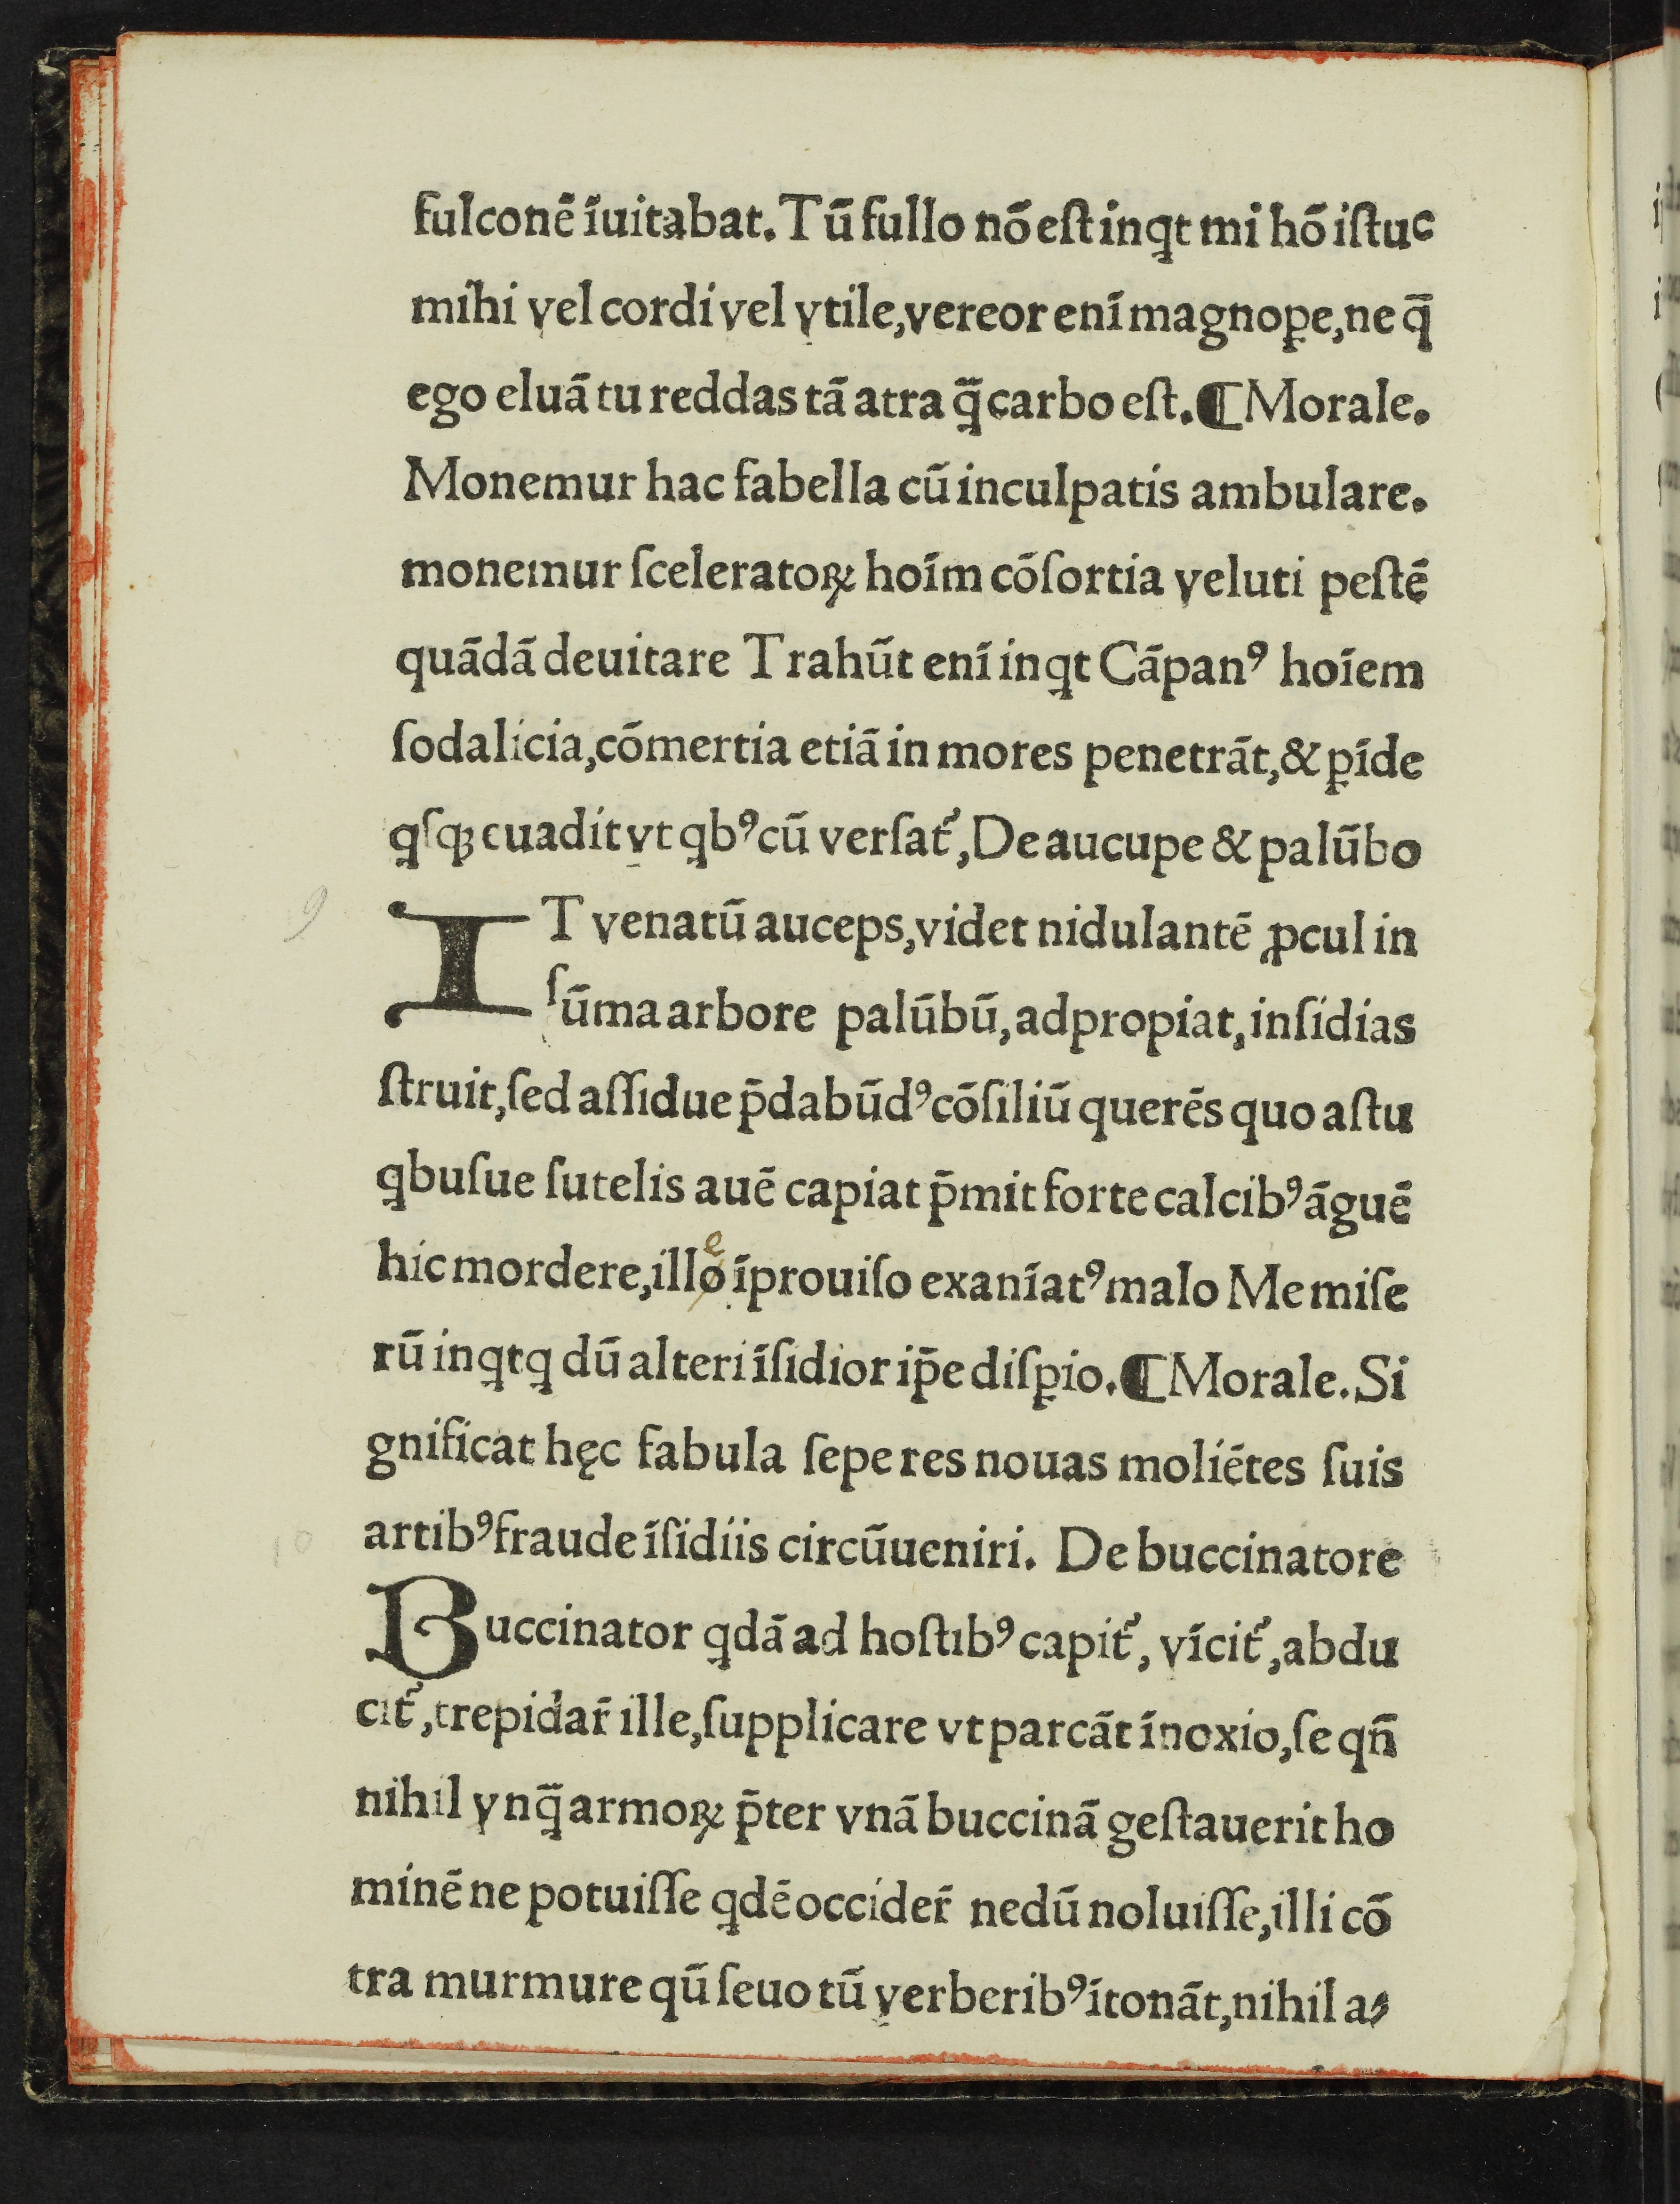 fulconē ĩuitabat. Tū fullo nō eſt inqt mi hō iſtuc
mihi vel cordi vel vtile, vereor enĩ magnoꝑe, ne q̄
ego eluā tu reddas tā atra q̄̃ carbo eſt. ¶ Morale.
Monemur hac fabella cū inculpatis ambulare.
monemur ſceleratoꝝ hoĩm cōſortia veluti peſtē
quādā deuitare Trahūt enĩ inqt Cāpanꝰ hoĩem
ſodalicia, cōmertia etiā in mores penetrāt, & ꝑĩde
qſqꝫ euadit vt qbꝰ cū verſat᷑, De aucupe & palūbo
9
IT venatū auceps, videt nidulantē ꝓcul in
ſūma arbore palūbū, adpropiat, inſidias
ſtruit, ſed aſſidue p̄dabūdꝰ cōſiliū querēs quo aſtu
qbuſue ſutelis auē capiat p̄mit forte calcibꝰ āguē
e
hic mordere, illo ĩprouiſo exanĩatꝰ malo Me miſe
rū inqt q dū alteri ĩſidior ip̄e diſꝑio. ¶ Morale. Si
gnificat hęc fabula ſepe res nouas moliētes ſuis
artibꝰ fraude ĩſidiis circūueniri. De buccinatore
10
Buccinator qdā ad hoſtibꝰ capit᷑, vĩcit᷑, abdu
cit᷑, trepidar̄ ille, ſupplicare vt parcāt ĩnoxio, ſe qn̄
nihil vnq̄̃ armoꝝ p̄ter vnā buccinā geſtauerit ho
minē ne potuiſſe qdē occider̄ nedū noluiſſe, illi cō
tra murmure qū ſeuo tū verberibꝰ ĩtonāt, nihil a⸗